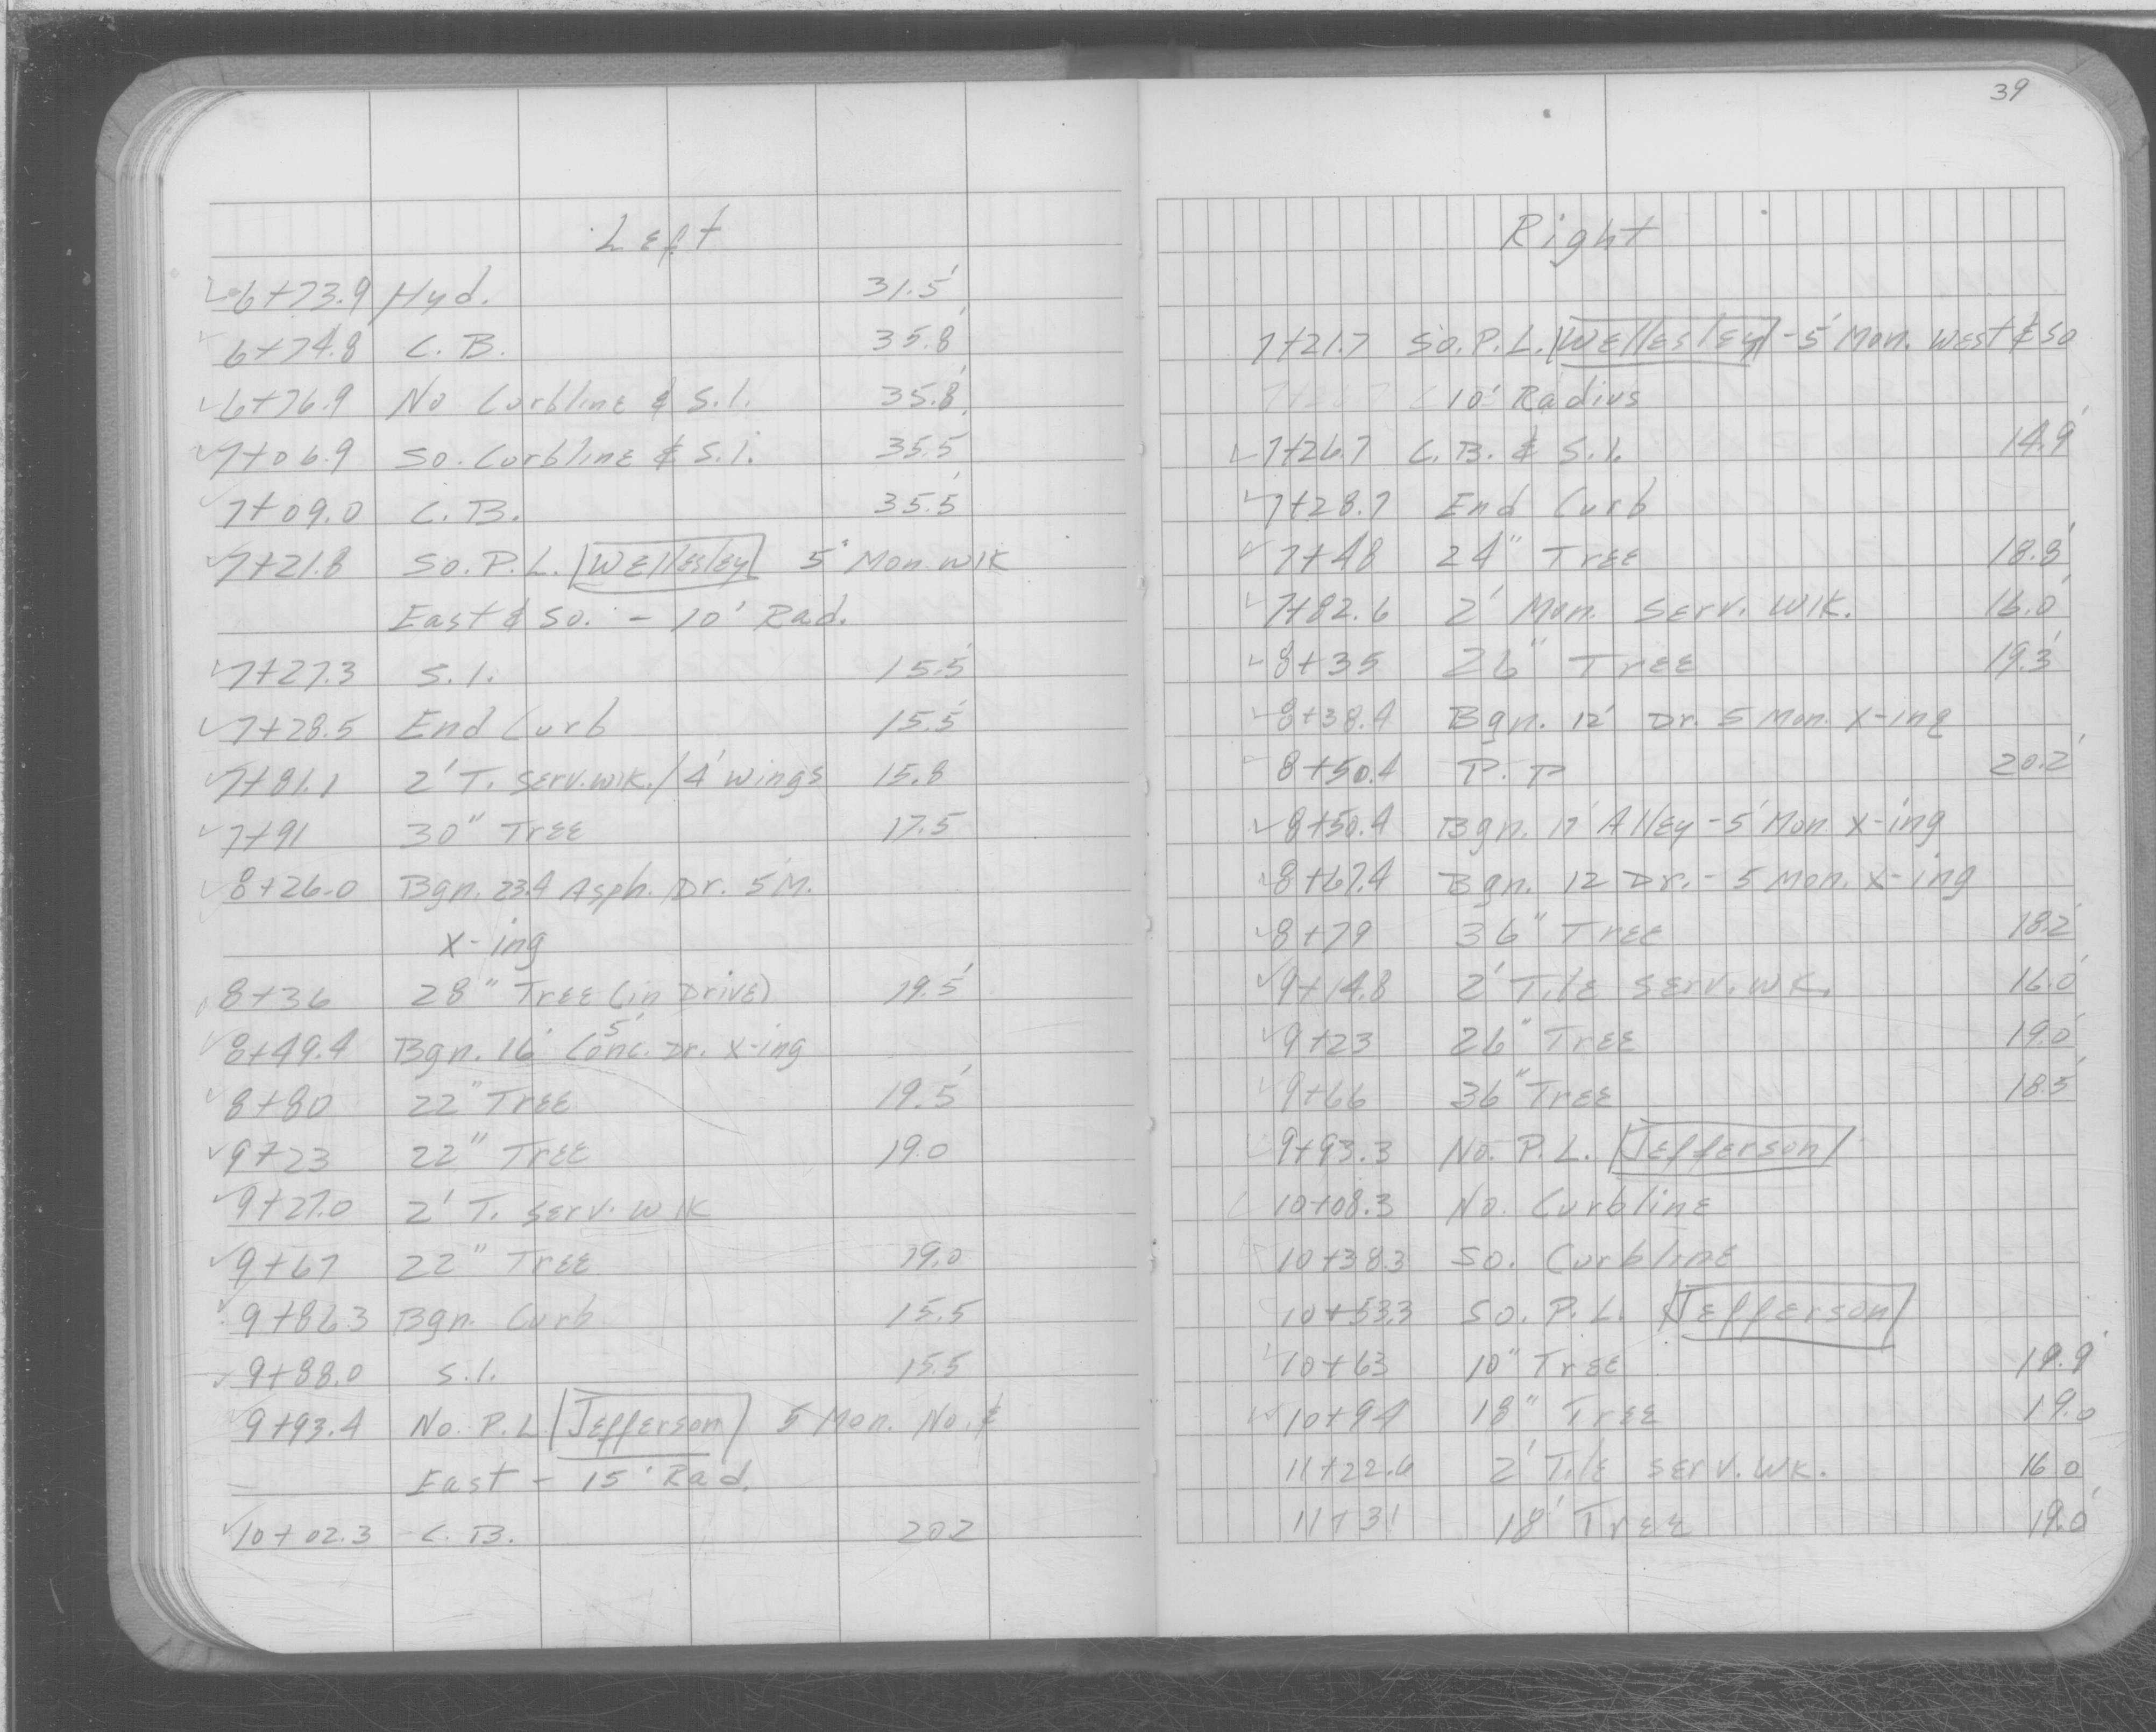 39
Left
6+73.9 Hyd. 31.5'
6+74.8 C.B. 35.8'
6+76.9 No Curbline & S.I. 35.8'
7+06.9 So. Curbline & S.I. 35.5'
7+09.0 C.B. 35.5'
7+21.8 So.P.L. Wellesley 5' Mon. Wlk
East & So. - 10' Rad.
7+27.3 S.I. 15.5'
7+28.5 End Curb 15.5'
7+81.1 2' T. Serv. wlk. / 4' wings 15.8
7+91 30" Tree 17.5'
8+26.0 Bgn. 23.4 Asph. Dr. 5' M.
X-ing
8+36 28" Tree (in Drive) 19.5'
8+49.4 Bgn. 16' 5' Conc. Dr. X-ing
8+80 22" Tree 19.5'
9+23 22" Tree 19.0
9+27.0 2' T. Serv. Wlk
9+67 22" Tree 19.0
9+86.3 Bgn. Curb 15.5
9+88.0 S.I. 15.5
9+93.4 No. P.L. Jefferson 5 Mon. No. &
East - 15' Rad.
10+02.3 C.B. 20.2
Right
7+21.7 So. P.L. Wellesley - 5' Mon. West & So
10' Radius
7+26.7 C.B. & S.I. 14.9'
7+28.7 End Curb
7+48 24" Tree 18.8'
7+82.6 2' Mon. Serv. Wlk. 16.0'
8+35 26" Tree 19.3'
8+38.4 Bgn. 12' Dr. 5 Mon. X-ing
8+50.4 P.P 20.2'
8+50.4 Bgn. 17' Alley - 5' Mon X-ing
8+67.4 Bgn. 12 Dr. - 5 Mon. X-ing
8+79 36" Tree 18.2'
9+14.8 2' Tile Serv. Wk. 16.0'
9+23 26" Tree 19.0'
9+66 36" Tree 18.5'
9+93.3 No. P.L. Jefferson
10+08.3 No. Curbline
10+38.3 So. Curbline
10+53.3 So. P.L. Jefferson
10+63 10" Tree 19.9'
10+94 18" Tree 19.0
11+22.6 2' Tile Serv. Wk. 16.0
11+31 18' Tree 19.0'